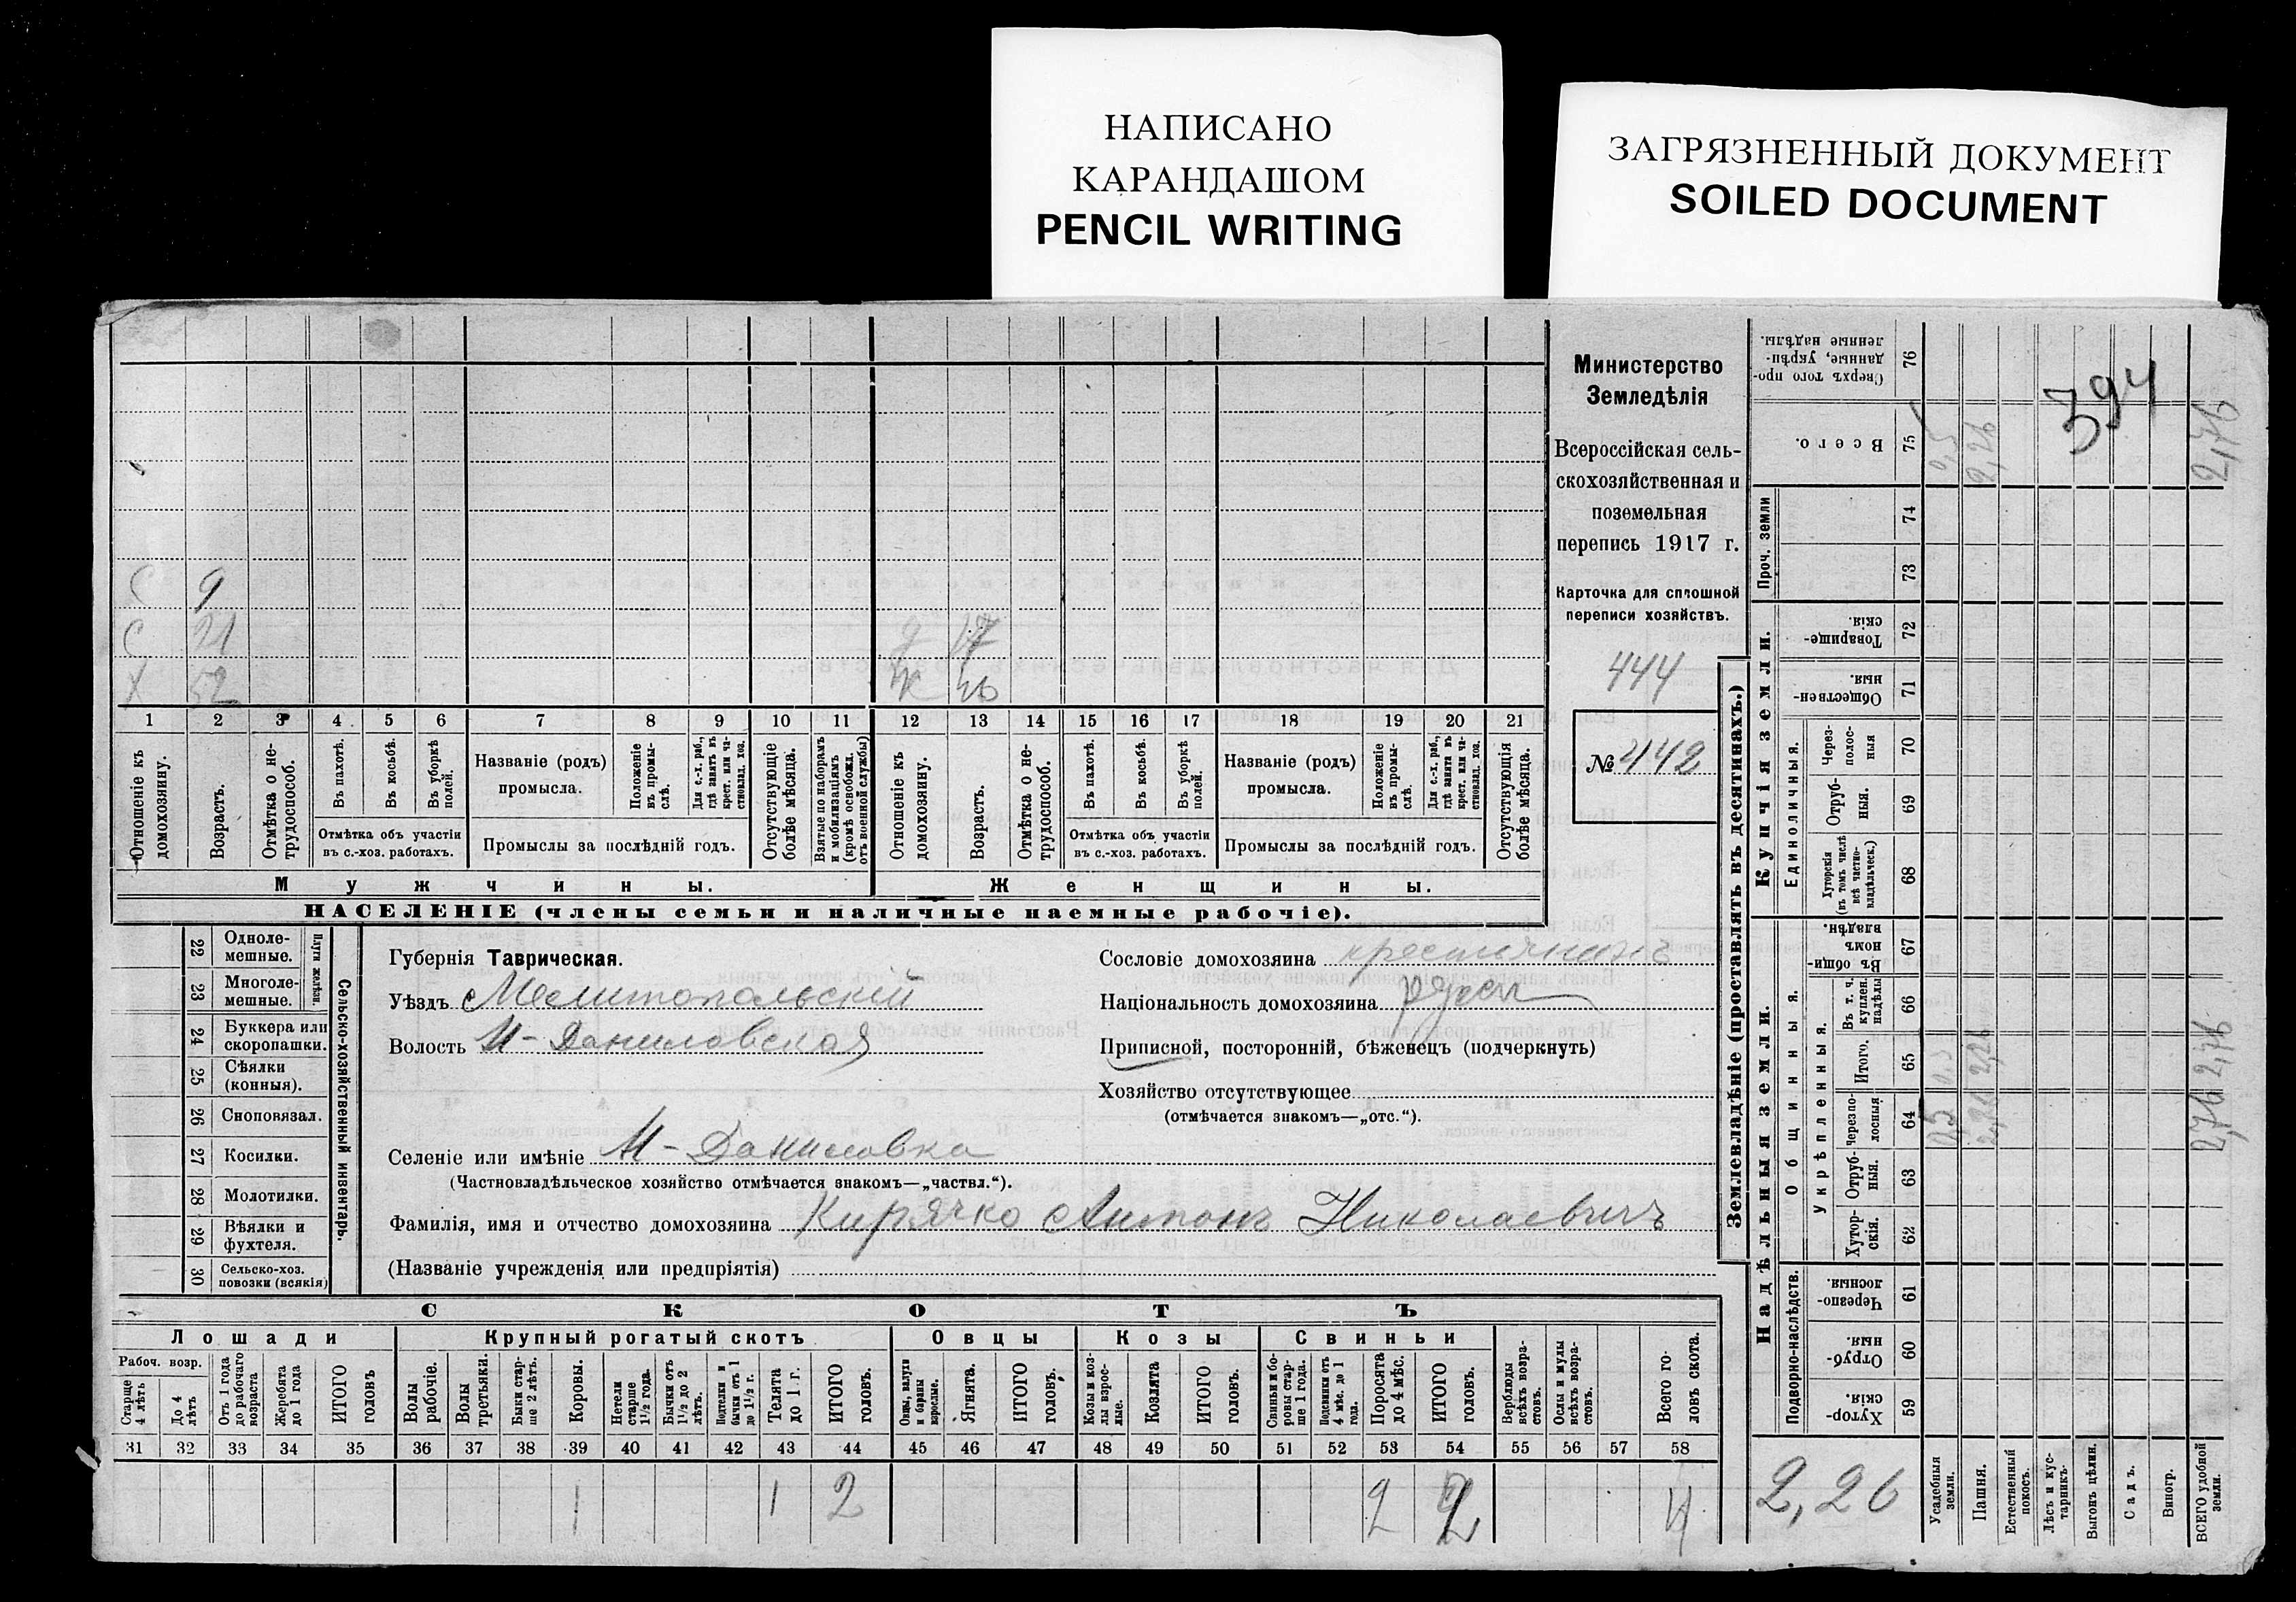 НАПИСАНО
КАРАНДАШОМ
PENCIL WRITING
ЗАГРЯЗНЕННЫЙ ДОКУМЕНТ
SOILED DOCUMENT
С 9
С 21 17
Х 52 Ж
1 2 3 4 5 6 7 8 9 10 11 12 13 14 15 16 17 18 19 20 21
Отношеніе къ домохозяину.
Возрастъ.
Отмѣтка о не-
трудоспособ.
Въ пахотѣ.
Въ косьбѣ.
Въ уборкѣ
полей.
Отмѣтка объ участіи
въ с.-хоз. работахъ.
Названіе (родъ)
промысла.
Положеніе
въ промы-
слѣ.
Для с.-х. раб.,
гдѣ занятъ въ
крест. или ча-
стновлад. хоз.
Промыслы за послѣдній годъ.
Отсутствующіе
болѣе мѣсяца.
Взятые по наборамъ
и мобилизаціямъ
(кромѣ освобожд.
отъ военной службы)
Отношеніе къ
домохозяину.
Возрастъ.
Отмѣтка о не-
трудоспособ.
Въ пахотѣ.
Въ косьбѣ.
Въ уборкѣ
полей.
Отмѣтка объ участіи
въ с.-хоз. работахъ.
Названіе (родъ)
промысла.
Положеніе
въ промы-
слѣ.
Для с.-х. раб.,
гдѣ занята въ
крест. или ча-
стновлад. хоз.
Промыслы за послѣдній годъ.
Отсутствующія
болѣе мѣсяца.
Мужчины.
Женщины.
НАСЕЛЕНІЕ (члены семьи и наличные наемные рабочіе).
Министерство
Земледѣлія
Всероссійская сель-
скохозяйственная и
поземельная
перепись 1917 г.
Карточка для сплошной
переписи хозяйствъ.
444
№ 442
22 Одноле-
мешные.
23 Многоле-
мешные.
Плуги желѣзн.
24 Буккера или
скоропашки.
25 Сѣялки
(конныя).
26 Сноповязал.
27 Косилки.
28 Молотилки.
29 Вѣялки и
фухтеля.
30 Сельско-хоз.
повозки (всякія)
Сельско-хозяйственный инвентарь.
Губернія Таврическая.
Уѣздъ Мелитопольскій
Волость М-Даниловская
Сословіе домохозяина крестьянинъ
Національность домохозяина русск
Приписной, посторонній, бѣженецъ (подчеркнуть)
Хозяйство отсутствующее
(отмѣчается знакомъ—„отс.“).
Селеніе или имѣніе М-Даниловка
(Частновладѣльческое хозяйство отмѣчается знакомъ—„частвл.“).
Фамилія, имя и отчество домохозяина Кирячко Антонъ Николаевичъ
(Названіе учрежденія или предпріятія)
СКОТЪ
Лошади
Крупный рогатый скотъ
Овцы
Козы
Свиньи
Рабоч. возр.
Старше
4 лѣтъ
До 4
лѣтъ
Отъ 1 года
до рабочаго
возраста
Жеребята
до 1 года
ИТОГО
головъ
Волы
рабочіе.
Волы
третьяки.
Быки стар-
ше 2 лѣтъ.
Коровы.
Нетели
старше
1½ года.
Бычки отъ
1½ до 2
лѣтъ.
Подтелки и
бычки отъ 1
до 1½ г.
Телята
до 1 г.
ИТОГО
головъ.
Овцы, валухи
и бараны
взрослые.
Ягнята.
ИТОГО
головъ.
Козы и коз-
лы взрос-
лые.
Козлята
ИТОГО
головъ.
Свиньи и бо-
ровы стар-
ше 1 года.
Подсвинки отъ
4 мѣс. до 1
года.
Поросята
до 4 мѣс.
ИТОГО
головъ.
Верблюды
всѣхъ возра-
стовъ.
Ослы и мулы
всѣхъ возра-
стовъ.
Всего го-
ловъ скота.
31 32 33 34 35 36 37 38 39 40 41 42 43 44 45 46 47 48 49 50 51 52 53 54 55 56 57 58
1 1 2 2 2 4
Землевладѣніе (проставлять въ десятинахъ.)
Купчія земли.
Надѣльныя земли.
Сверхъ того про-
данные, укрѣп-
ленные надѣлы.
76
394
Всего.
75
2,26
2,76
Проч. земли
74
73
Товарище-
скія.
72
Обществен-
ныя.
71
Единоличныя.
Через-
полос-
ныя
70
Отруб-
ныя.
69
Хуторскія
(въ томъ числѣ
всѣ частно-
владѣльческ.)
68
Общинныя.
Въ общин-
номъ
владѣн.
67
Укрѣпленныя.
Въ т. ч.
куплен.
надѣлы
66
Итого.
65
0,5
2,26
2,76
Черезпо-
лосныя
64
0,5
2,26
2,76
Отруб-
ныя.
63
Хутор-
скія.
62
Подворно-наслѣдств.
Черезпо-
лосныя.
61
Отруб-
ныя.
60
Хутор-
скія.
59
2,26
Усадебныя
земли.
Пашня.
Естественный
покосъ.
Лѣсъ и кус-
тарникъ.
Выгонъ цѣлин.
Садъ.
Виногр.
ВСЕГО удобной
земли.